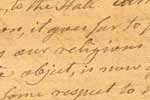 to the Hall
on, it goes far to
our religious
object, is now
some respect to